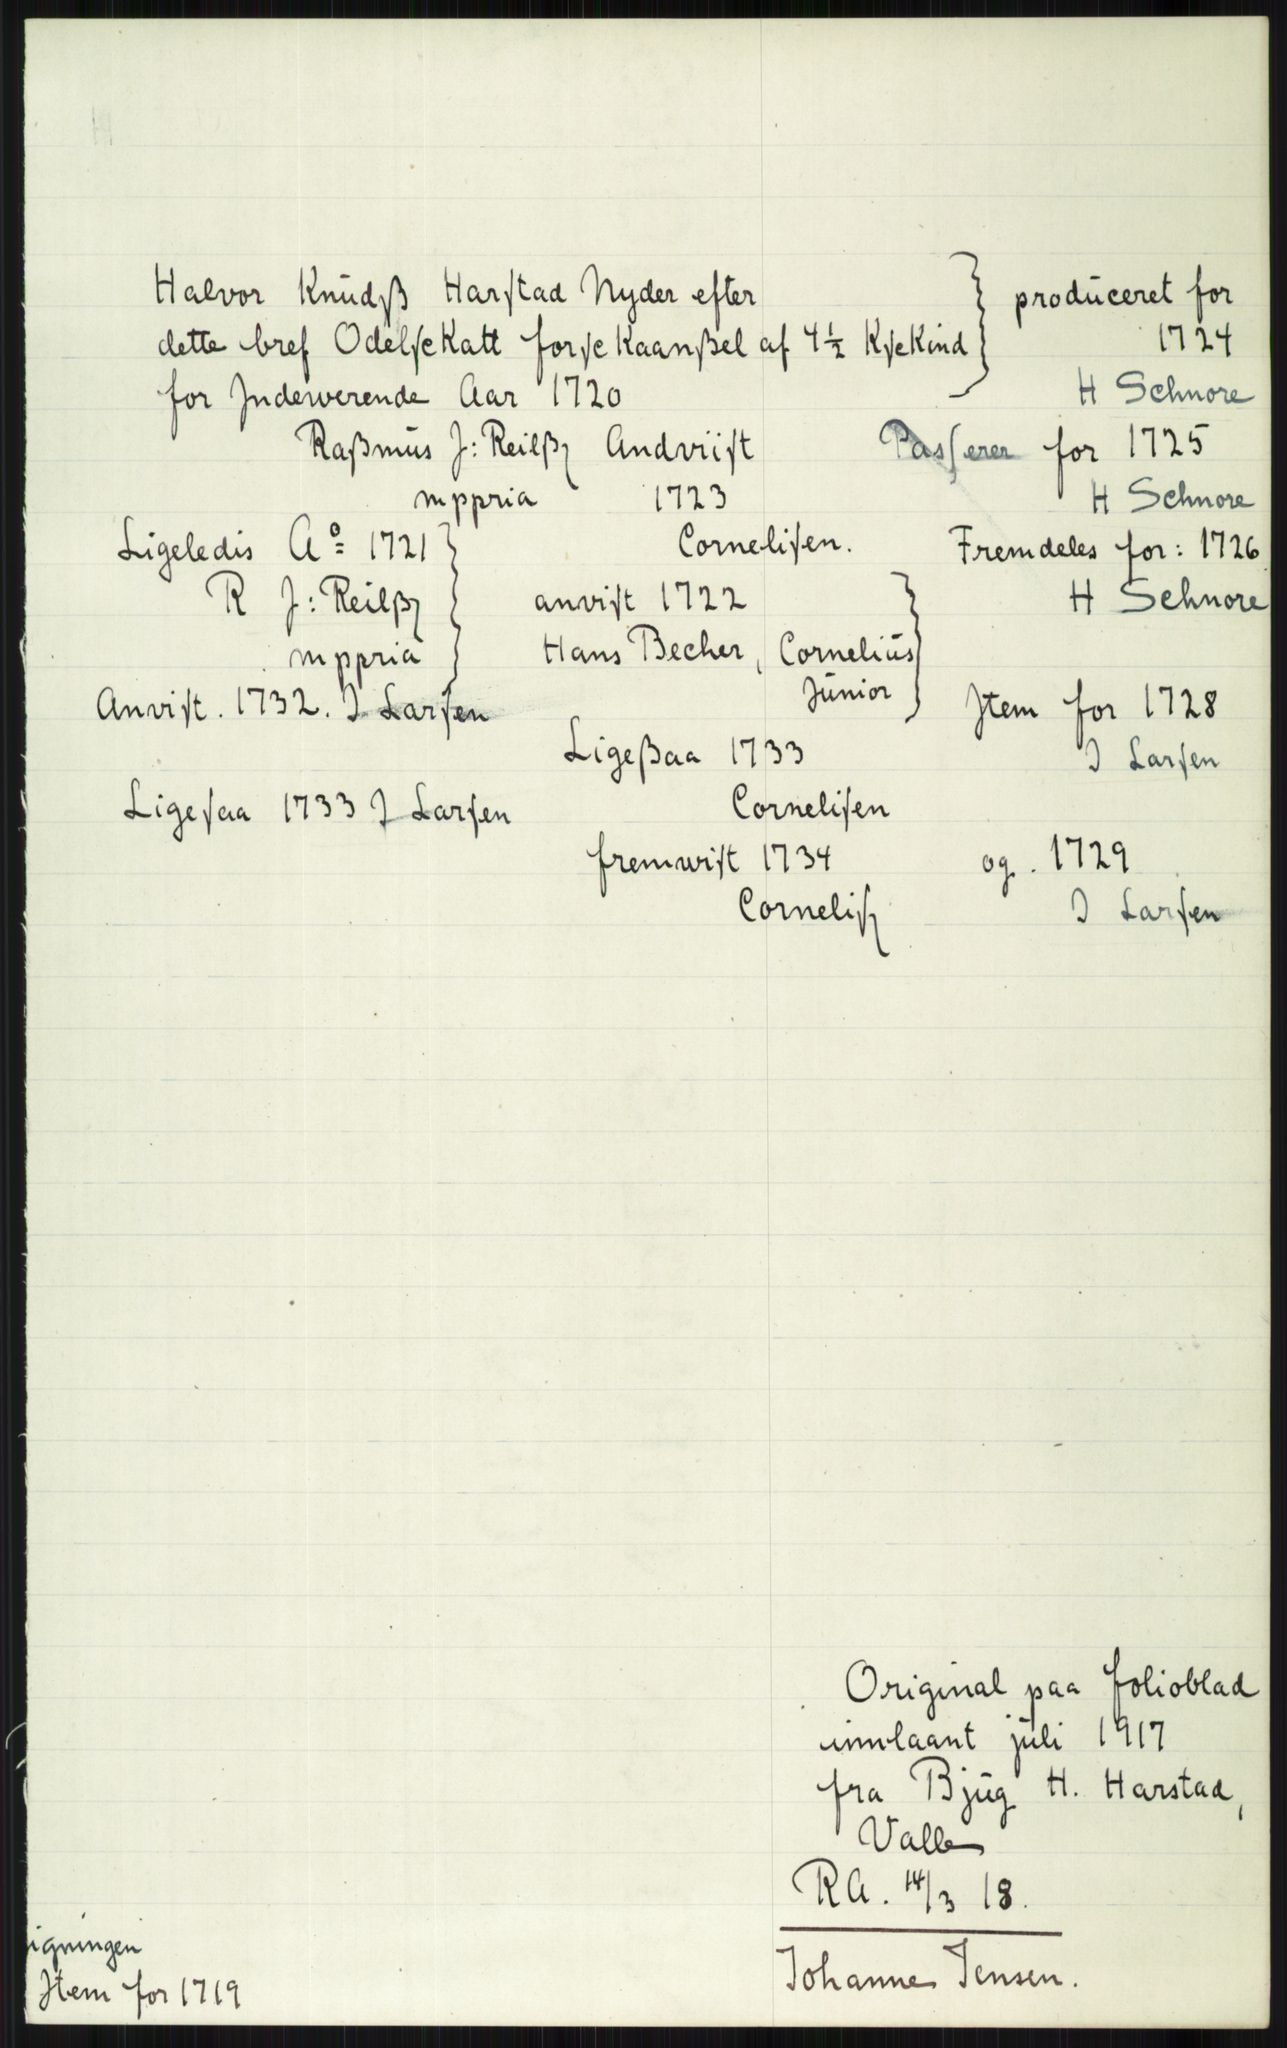 Halvor Knudß Harstad Nyder efter
dette bref Odelsckatt forsckaanßel af 4½ Kschind
for Indewerende Aar 1720
Raßmus J: Reilß Andviist
mppria 1723
Cornelisen.
Ligeledis Aº 1721
R J: Reilß
mppria
anvist 1722
Hans Becher, Cornelius
Junior
Anvist. 1732. I Larsen
Ligeßaa 1733
Cornelisen
Ligesaa 1733 I Larsen
fremwist 1734
Corneliß
produceret for
1724
H Schnore
Passerer for 1725
H Schnore
Fremdeles for: 1726
H Schnore
Item for 1728
I Larsen
og. 1729
I Larsen
Original paa folioblad
innlaant juli 1917
fra Bjug H. Harstad,
Valle
RA. 14/3 18.
Johanne Jensen.
igningen
Item for 1719